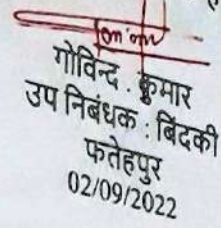 गोविन्द . कुमार
उप निबंधक : बिंदकी
फतेहपुर
02/09/2022